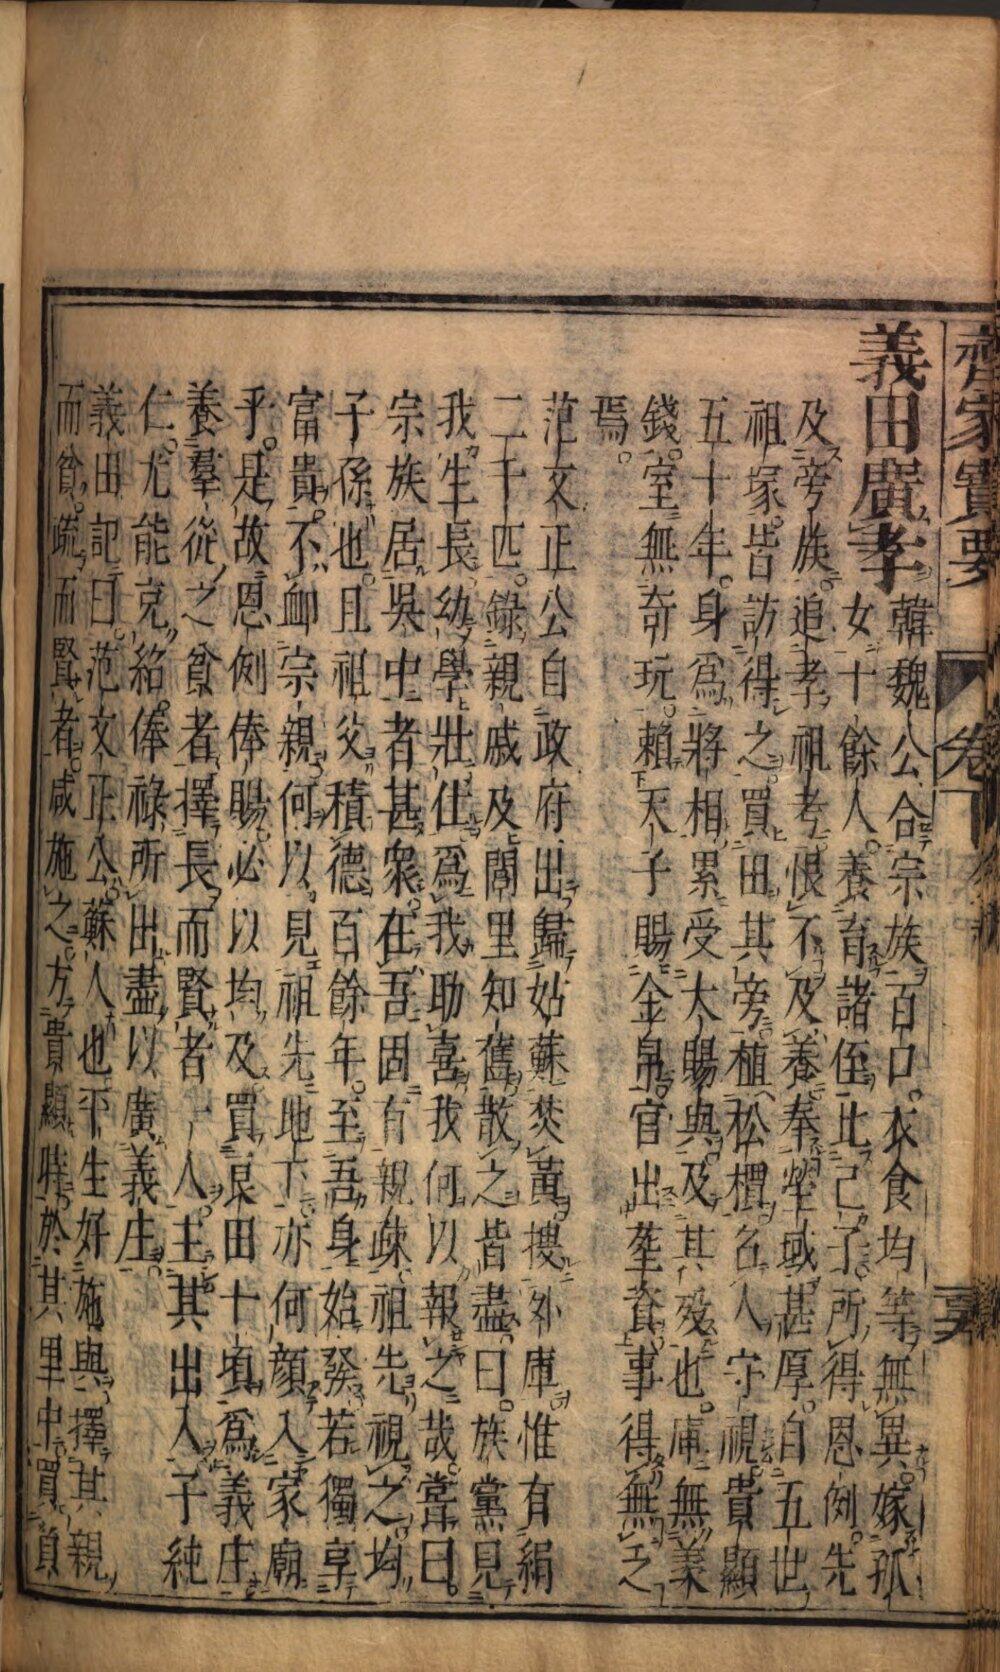 齊家寶要
卷下
義田廣孝
韓魏公合宗族百口。衣食均等無異。嫁孤
女十餘人。養育諸侄比己子。所得恩例。先
及旁族。追孝祖考。恨不及養。奉塋域甚厚。自五世
祖塚。皆訪得之。買田其旁。植松檟。召人守視。貴顯
五十年。身為將相。累受大賜與。及其歿也。庫無羨
錢。室無奇玩。賴天子賜金帛。官出塟資。事得無乏
焉。
范文正公自政府出歸姑蘇焚黃。搜外庫惟有絹
二千匹。錄親戚及閭里知舊。散之皆盡。曰。族黨見
我生長幼學壯仕。為我助喜。我何以報之哉。嘗曰。
宗族居吳中者甚衆。在吾固有親疎。祖先視之。均
子孫也。且祖父積德百餘年。至吾身始發。若獨享
富貴。不卹宗親。何以見祖先地下。亦何顏入家廟
乎。是故恩例俸賜。必以均及。買良田十頃。為義庄。
養羣從之貧者。擇長而賢者一人。主其出入。子純
仁。尤能克紹。俸祿所出。盡以廣義庄。
義田記曰。范文正公。蘇人也。平生好施與。擇其親
而貧。疏而賢者。咸施之。方貴顯時。於其里中。買負